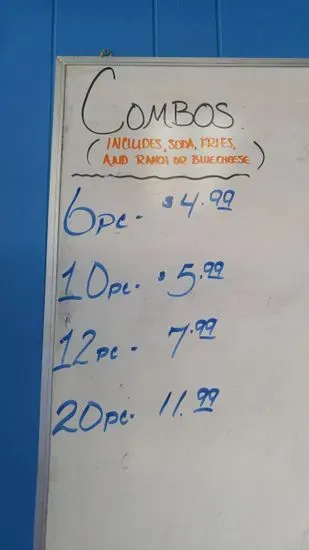 COMBOS
(INCLUDES, SODA, FRIES,
AND RANCH OR BLUECHEESE)
6pc- $4.99
10pc- $5.99
12pc- 7.99
20pc- 11.99